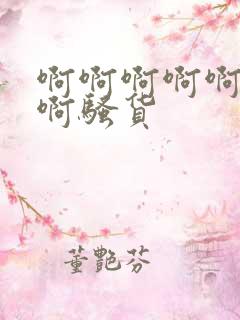 啊啊啊啊啊
啊骚货
董艷芬